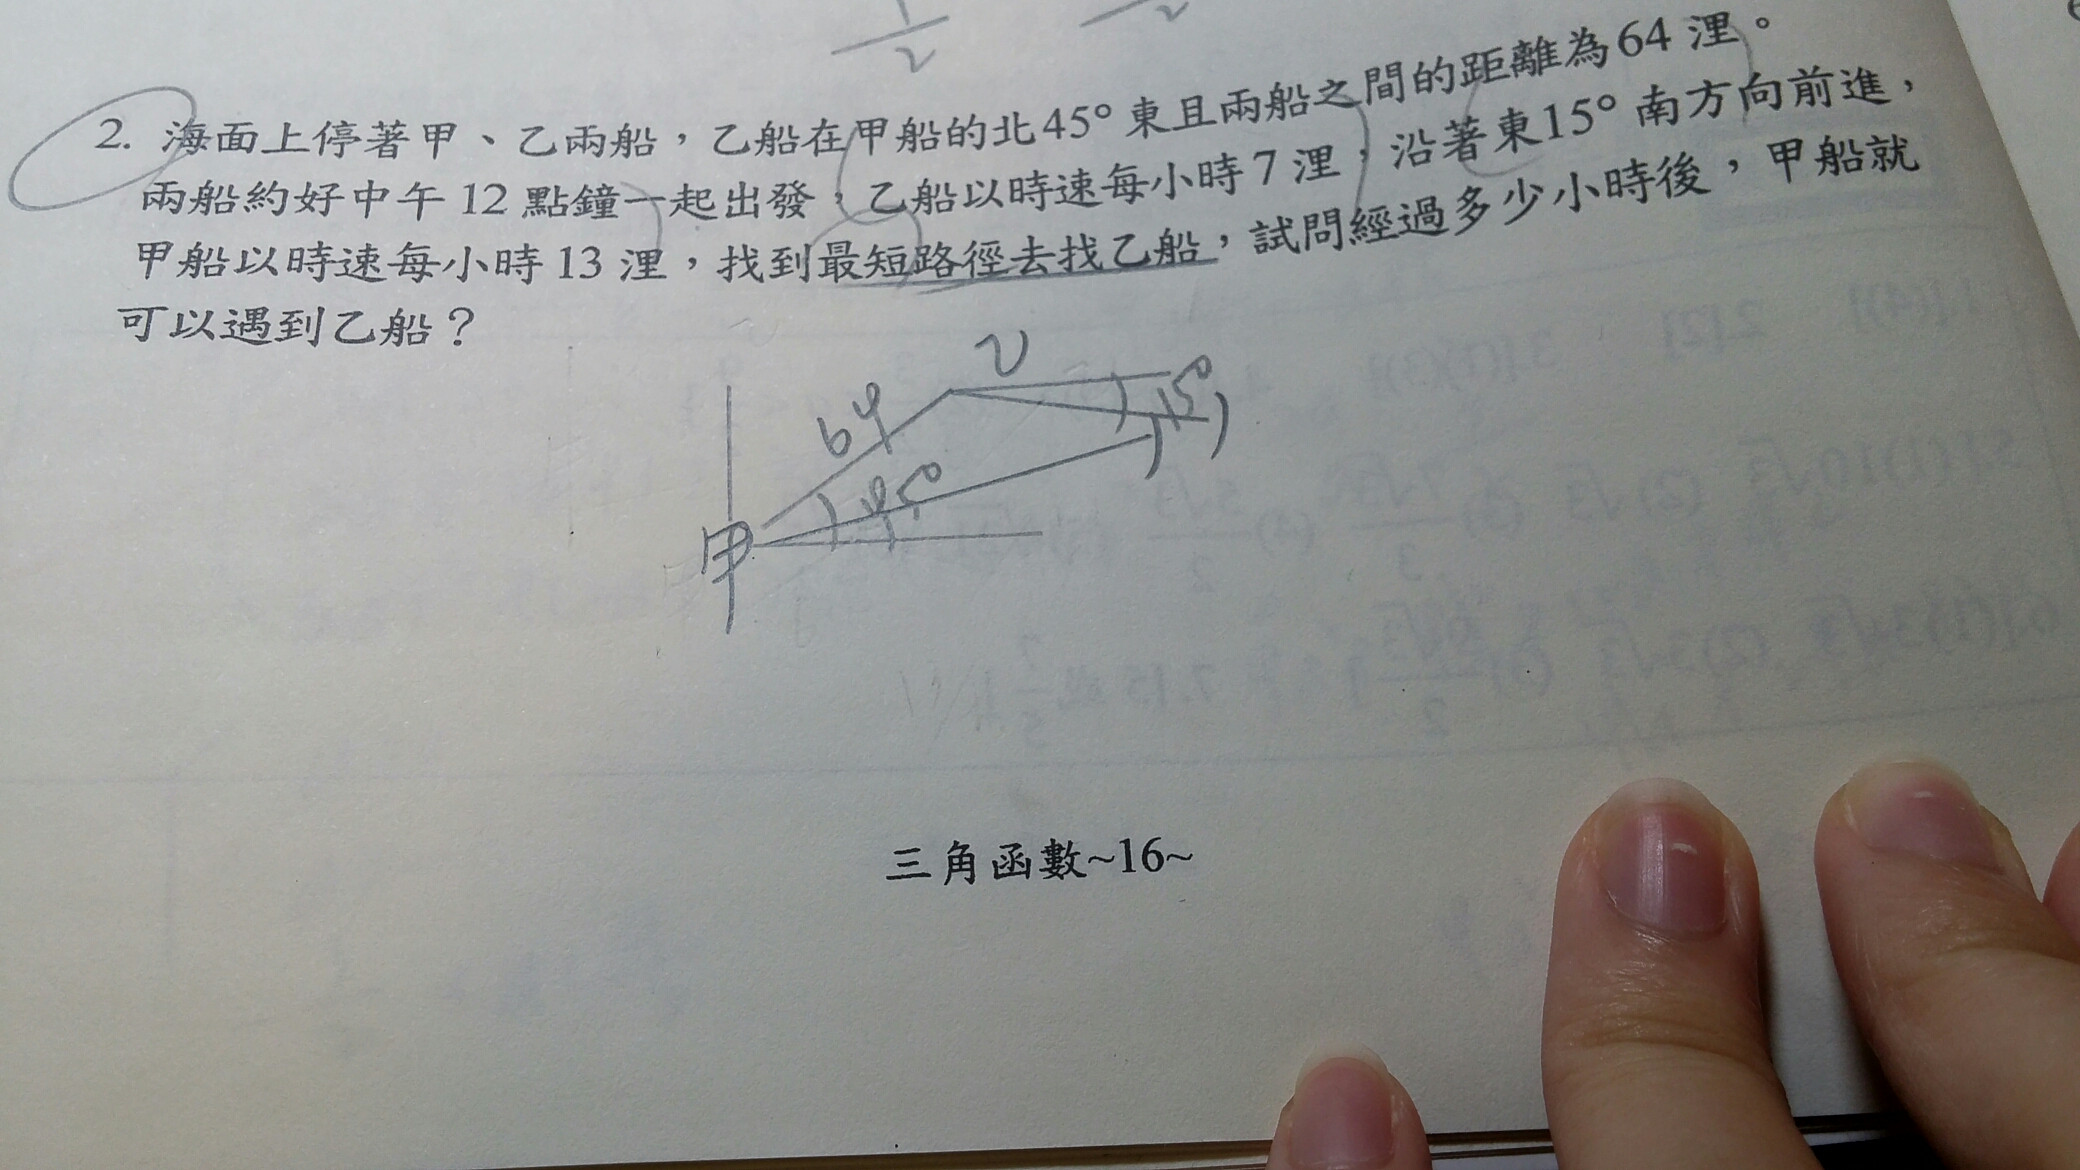 1/2
2
2. 海面上停著甲、乙兩船，乙船在甲船的北45°東且兩船之間的距離為64浬。
兩船約好中午12點鐘一起出發，乙船以時速每小時7浬，沿著東15°南方向前進，
甲船以時速每小時13浬，找到最短路徑去找乙船，試問經過多少小時後，甲船就
可以遇到乙船？
乙
64
15°
45°
甲
三角函數~16~